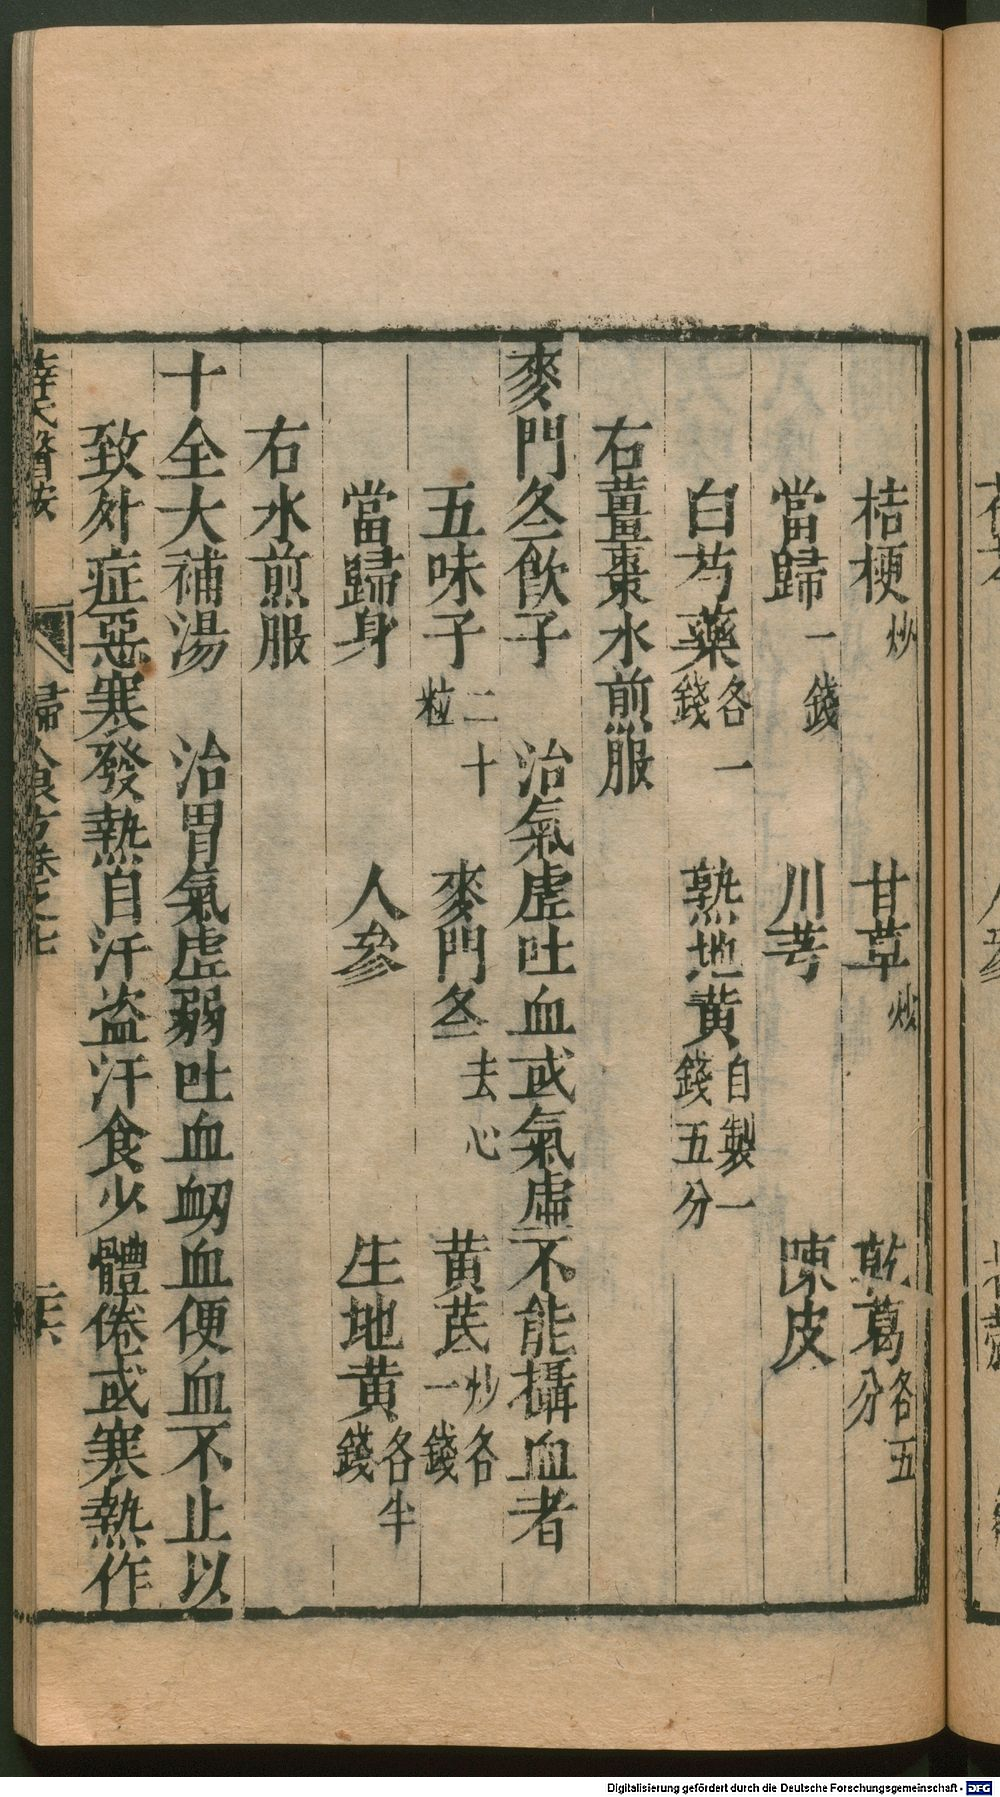 桔梗炒　甘草炒　乾葛各五分
當歸一錢　川芎　陳皮
白芍藥各一錢　熟地黃自製一錢五分
右薑棗水煎服
麥門冬飲子　治氣虛吐血或氣虛不能攝血者
五味子二十粒　麥門冬去心　黃芪炒各一錢
當歸身　人參　生地黃各半錢
右水煎服
十全大補湯　治胃氣虛弱吐血衂血便血不止以
致外症惡寒發熱自汗盗汗食少體倦或寒熱作
薛氏醫按　婦人良方卷之七
Digitalisierung gefördert durch die Deutsche Forschungsgemeinschaft - DFG